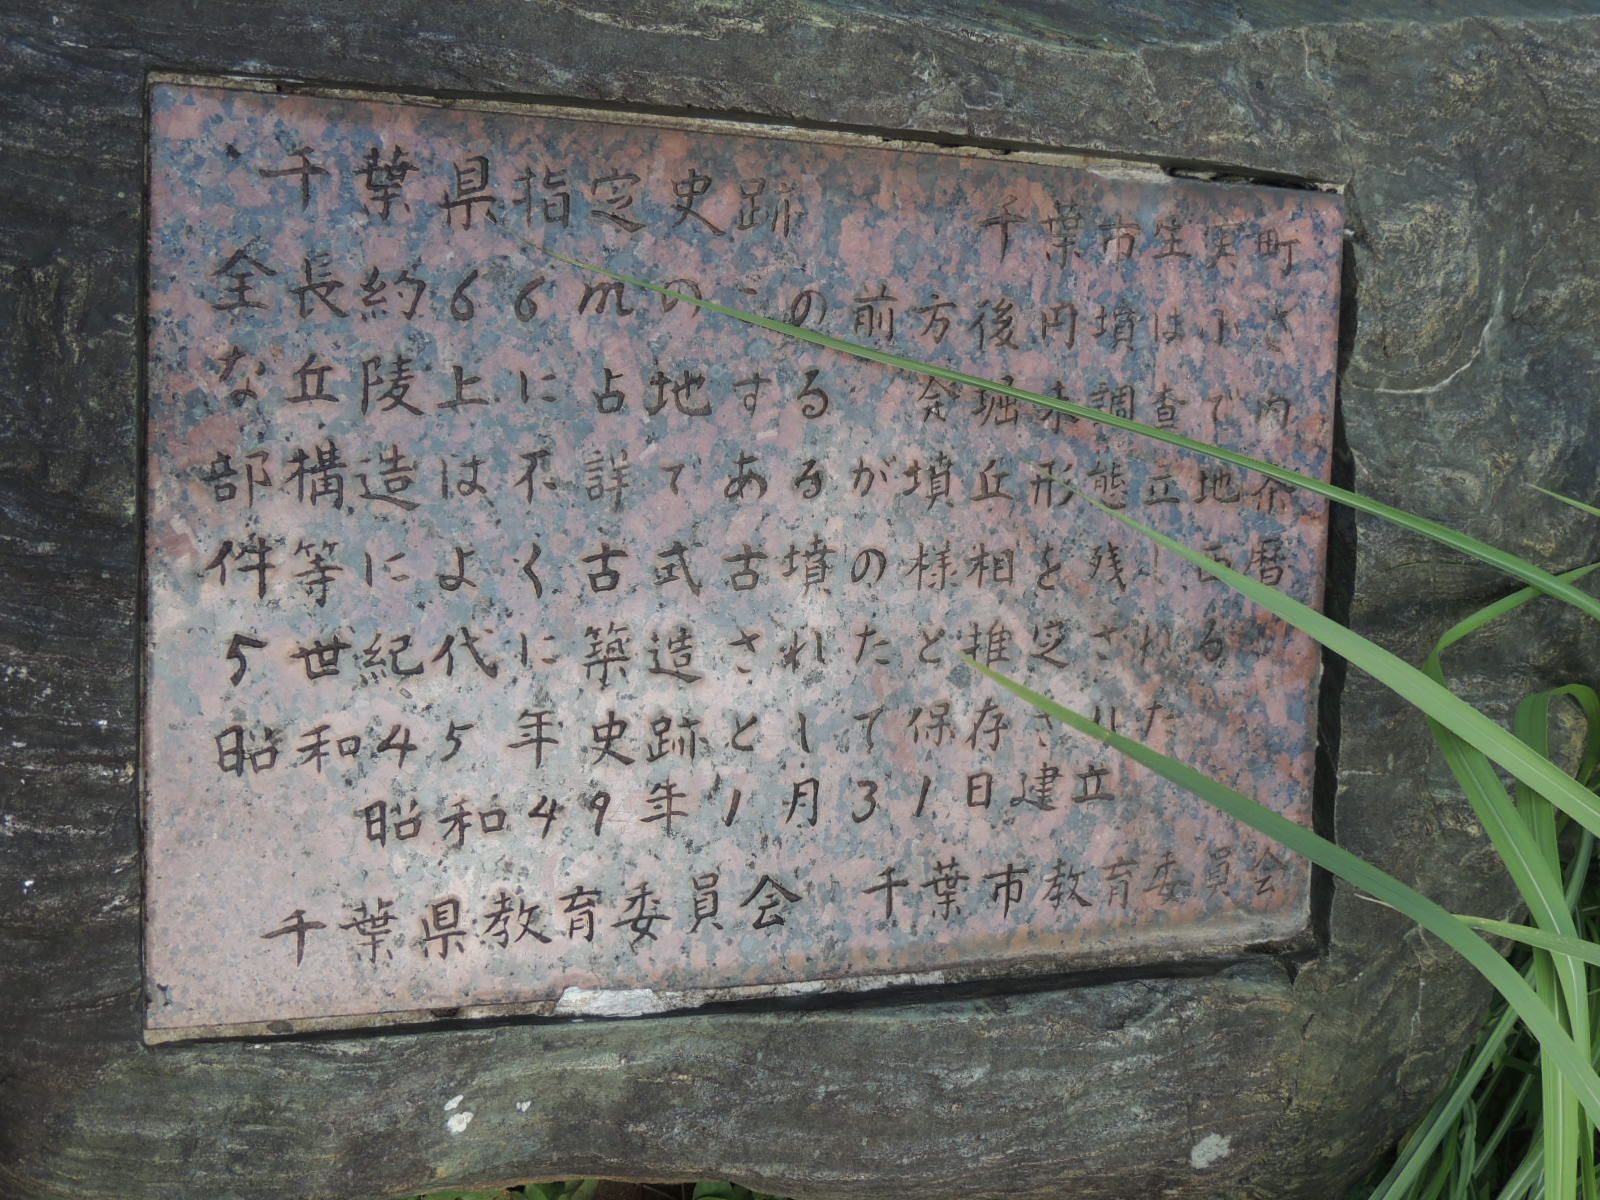 千葉県指定史跡 千葉市生実町
全長約66mのこの前方後円墳は小さ
な丘陵上に占地する 発掘未調査で内
部構造は不詳であるが墳丘形態立地条
件等によく古式古墳の様相を残し西暦
5世紀代に築造されたと推定される
昭和45年史跡として保存された
昭和49年1月31日建立
千葉県教育委員会 千葉市教育委員会